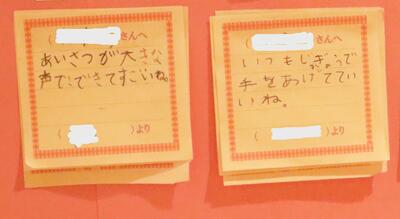 ( さんへ
あいさつが大きな
声でできてすごいね。
( )より
( さんへ
いつもじぎょうで
手をあげててい
いね。
( )より